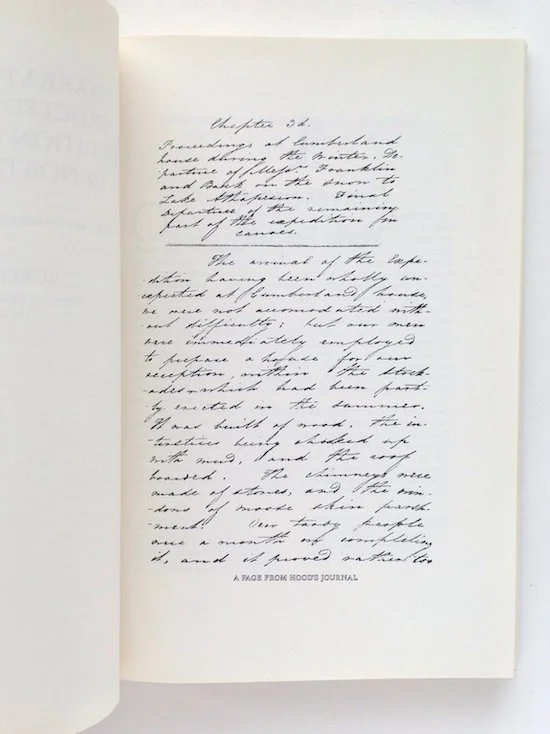 Chapter 3d.
Proceedings at Cumberland
house during the Winter. De-
parture of Messrs Franklin
and Back on the snow to
Lake Athapescow. Final
departure of the remaining
part of the expedition in
canoes.
The arrival of the Expe-
-dition having been wholly une-
-xpected at Cumberland house,
we were not accomodated with-
-out difficulty; but our men
were immediately employed
to prepare a house for our
reception, within the stock-
-ades, which had been part-
-ly erected in the summer.
It was built of wood, the in-
-terstices being choaked up
with mud, and the roof
boarded. The chimneys were
made of stones, and the win-
-dows of moose skin parch-
-ment. Our tardy people
were a month in completing
it, and it proved rather too
A PAGE FROM HOOD'S JOURNAL